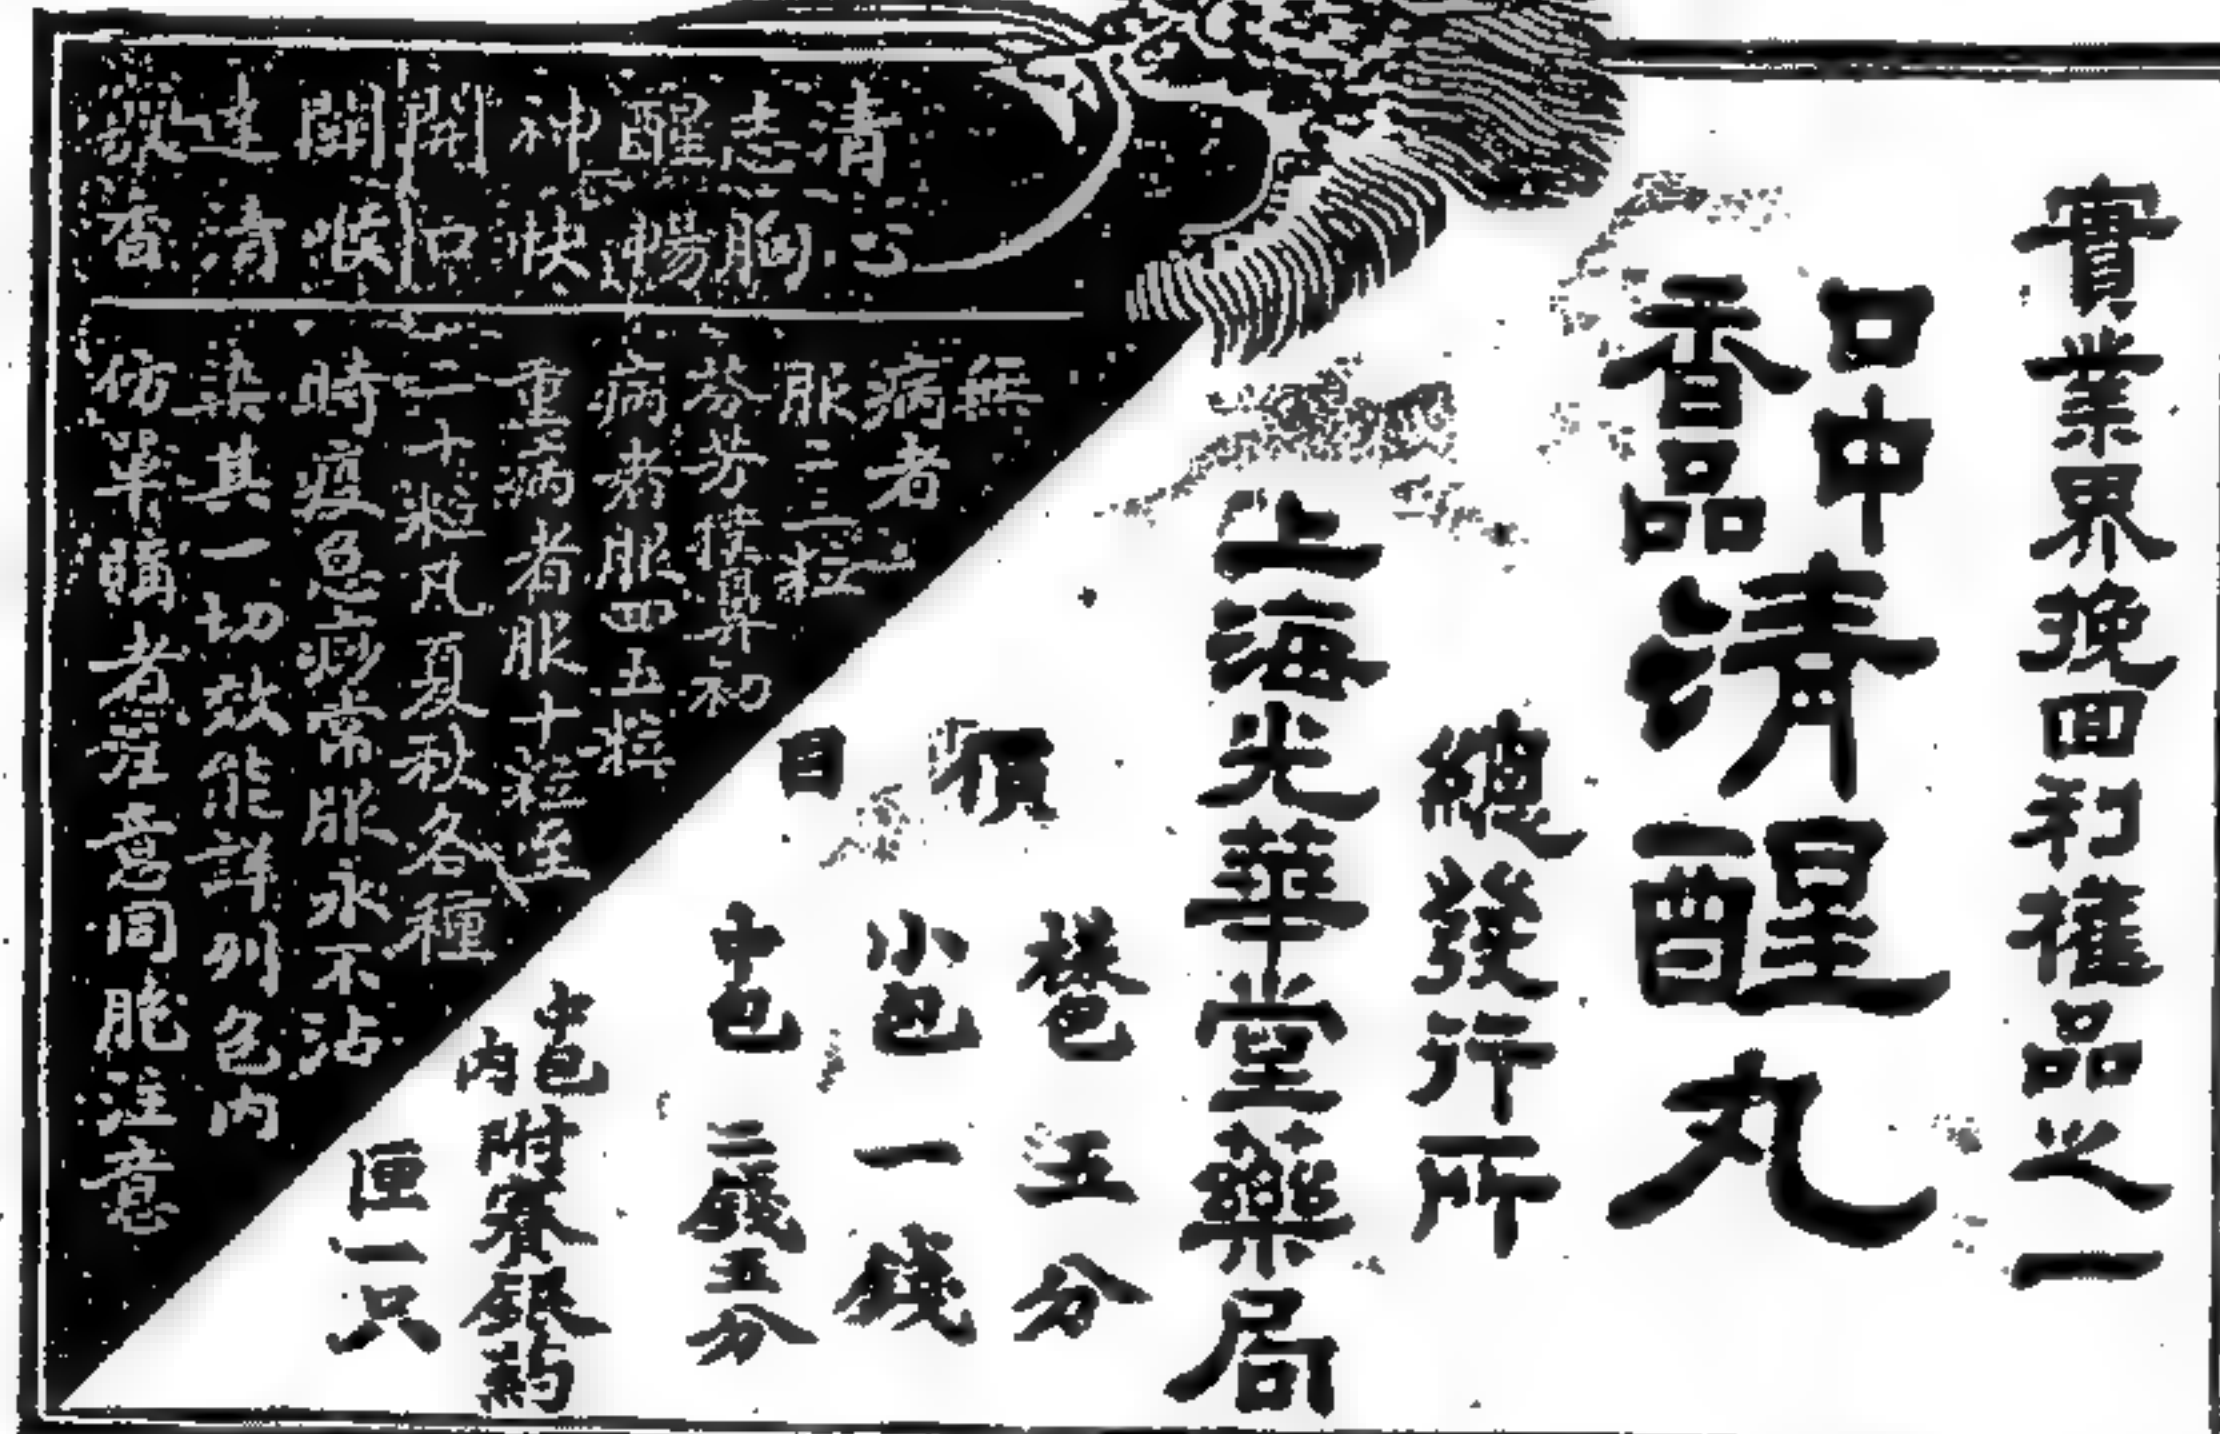 實業界挽回利權品之一
口中
香品
清醒丸
總發行所
上海光華堂藥局
價目
樣包 五分
小包 一錢
中包 二錢五分
中包內附賽銀葯匣一只
清心
志胸
醒暢
神快
開口
關喉
達清
散香
無
病者
服二三粒
芬芳撲鼻初
病者服四五粒
重病者服十粒至
二十粒凡夏秋各種
時疫急痧常服永不沾
染其一切效能詳列包內
仿單購者注意同胞注意